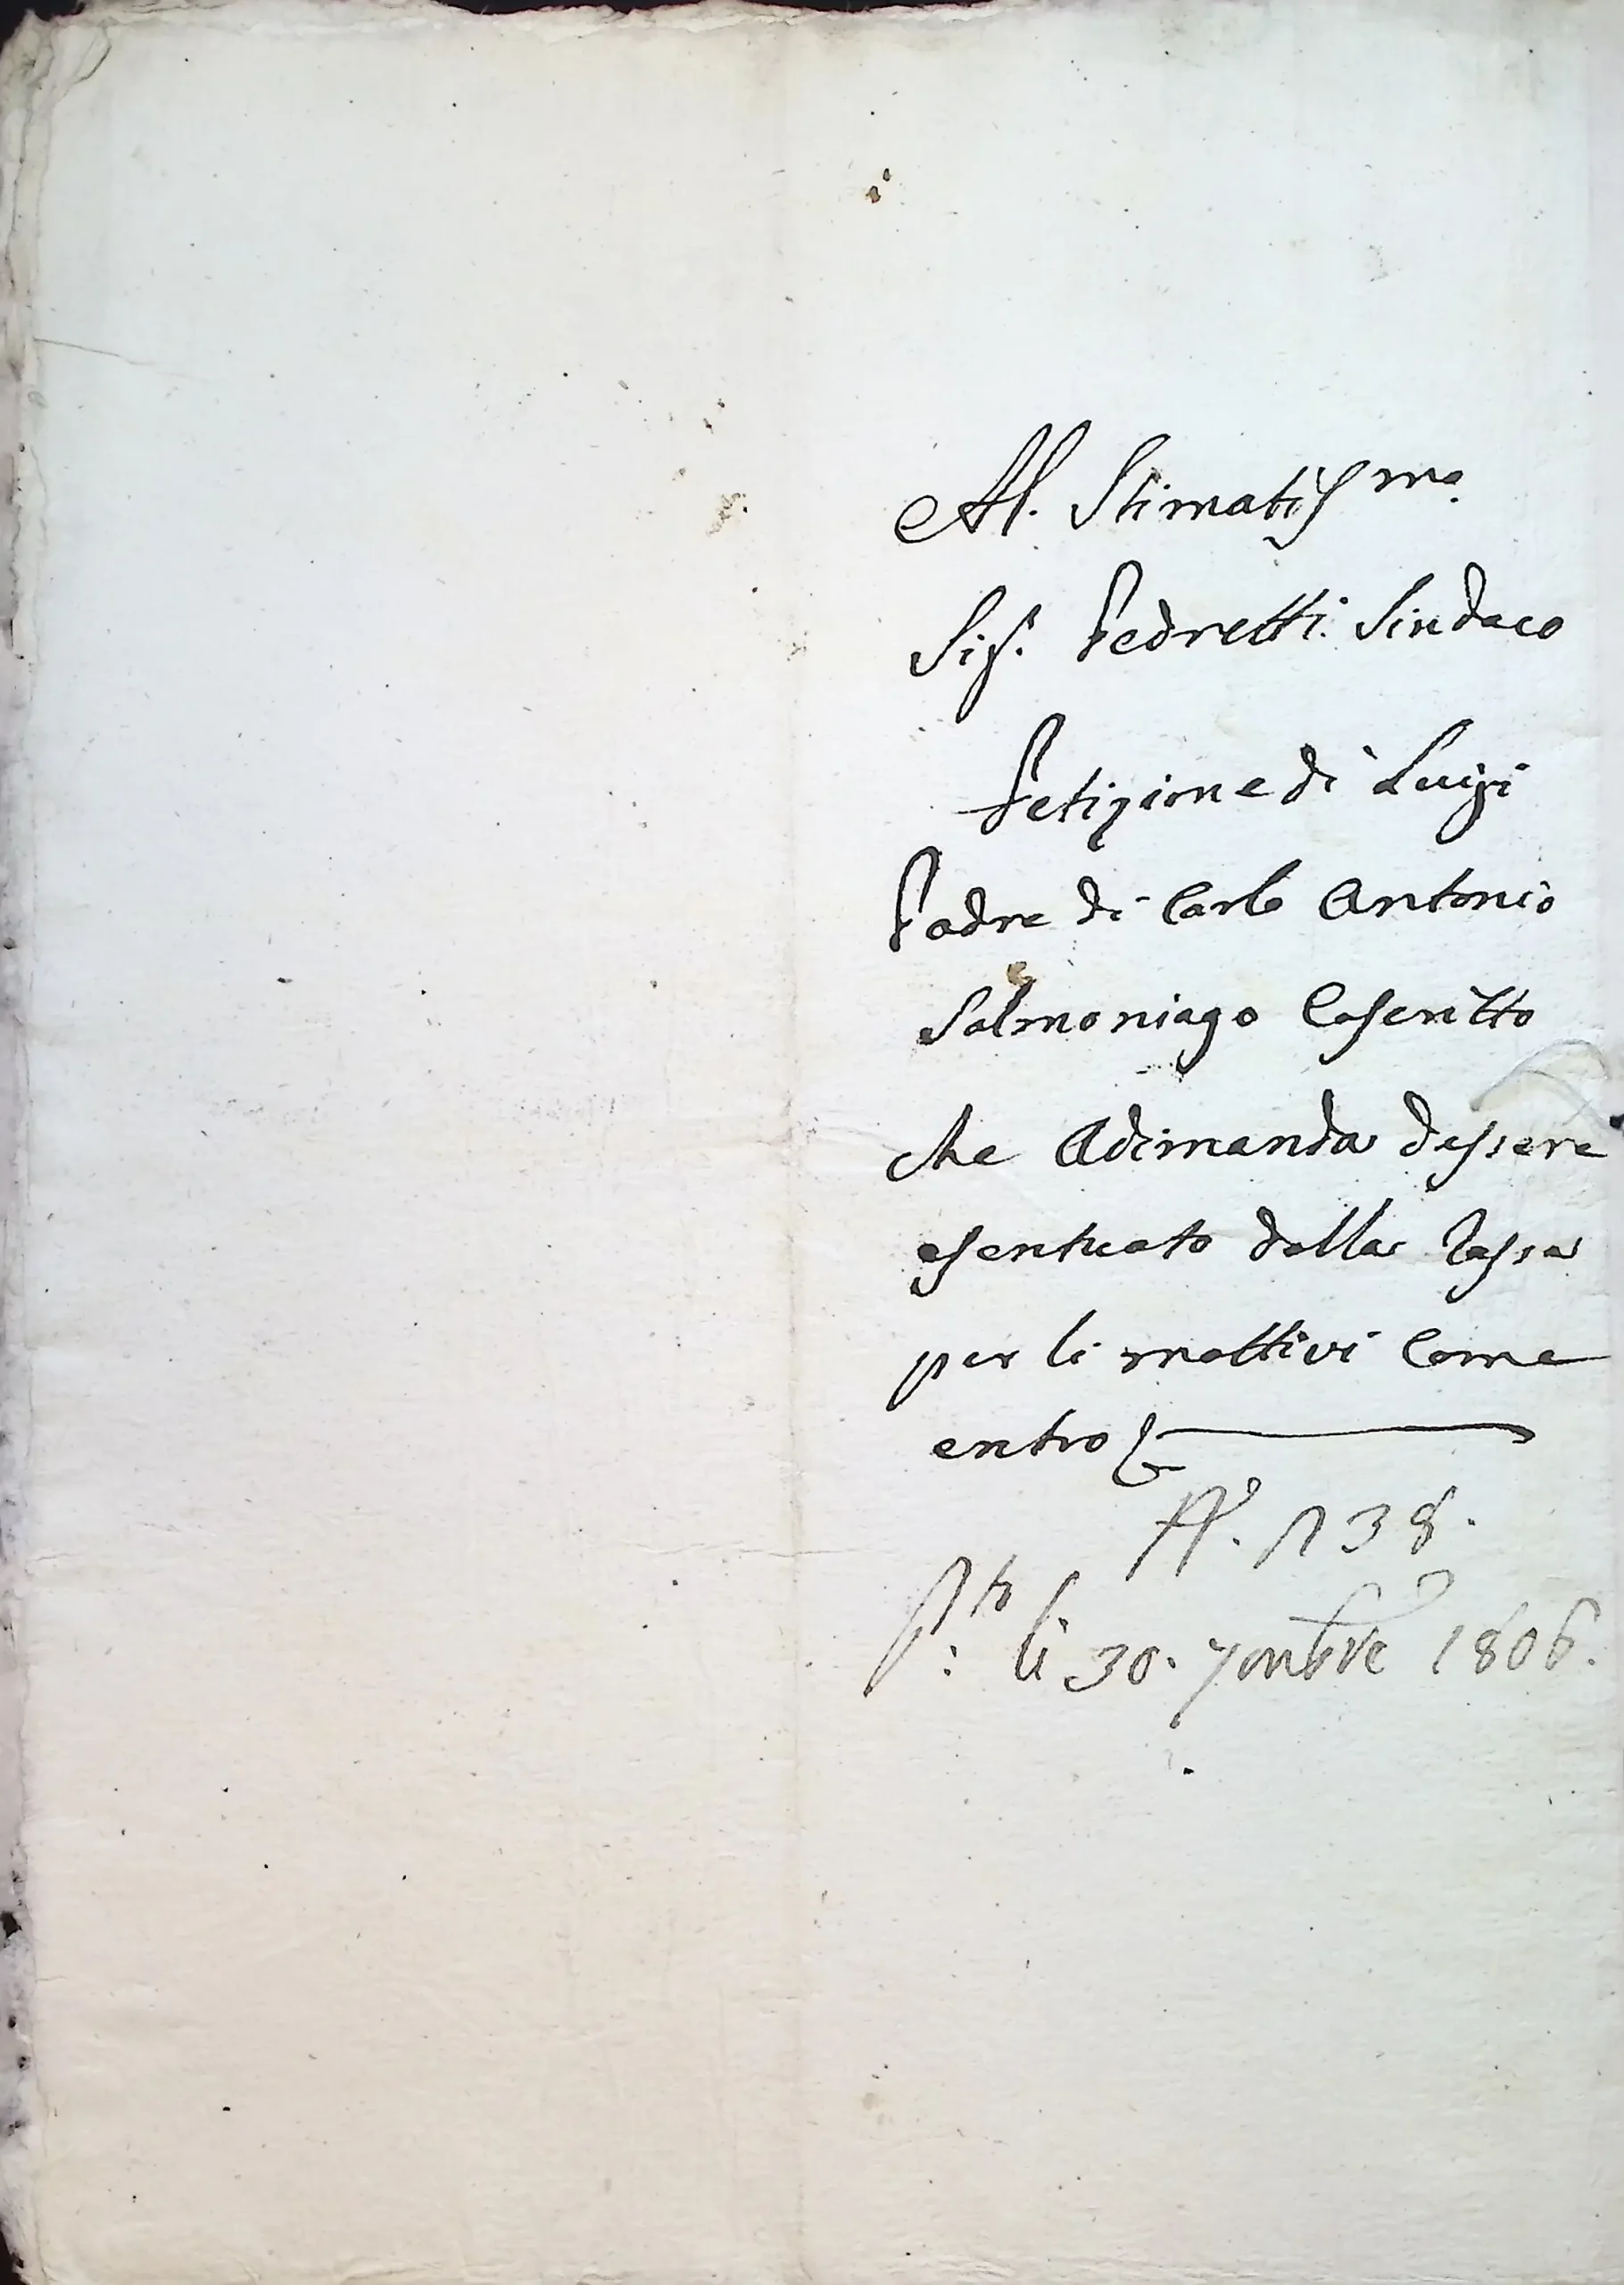 Al. Stimatis.mo
Sig.r Pedretti Sindaco
Petizione di Luigi
Padre di Carlo Antonio
Salmoniago Coscritto
che Adimanda dessere
esentuato dalla Tassa
per li mottivi Come
entro
N.° 138.
P.to li 30. 7mbre 1806.